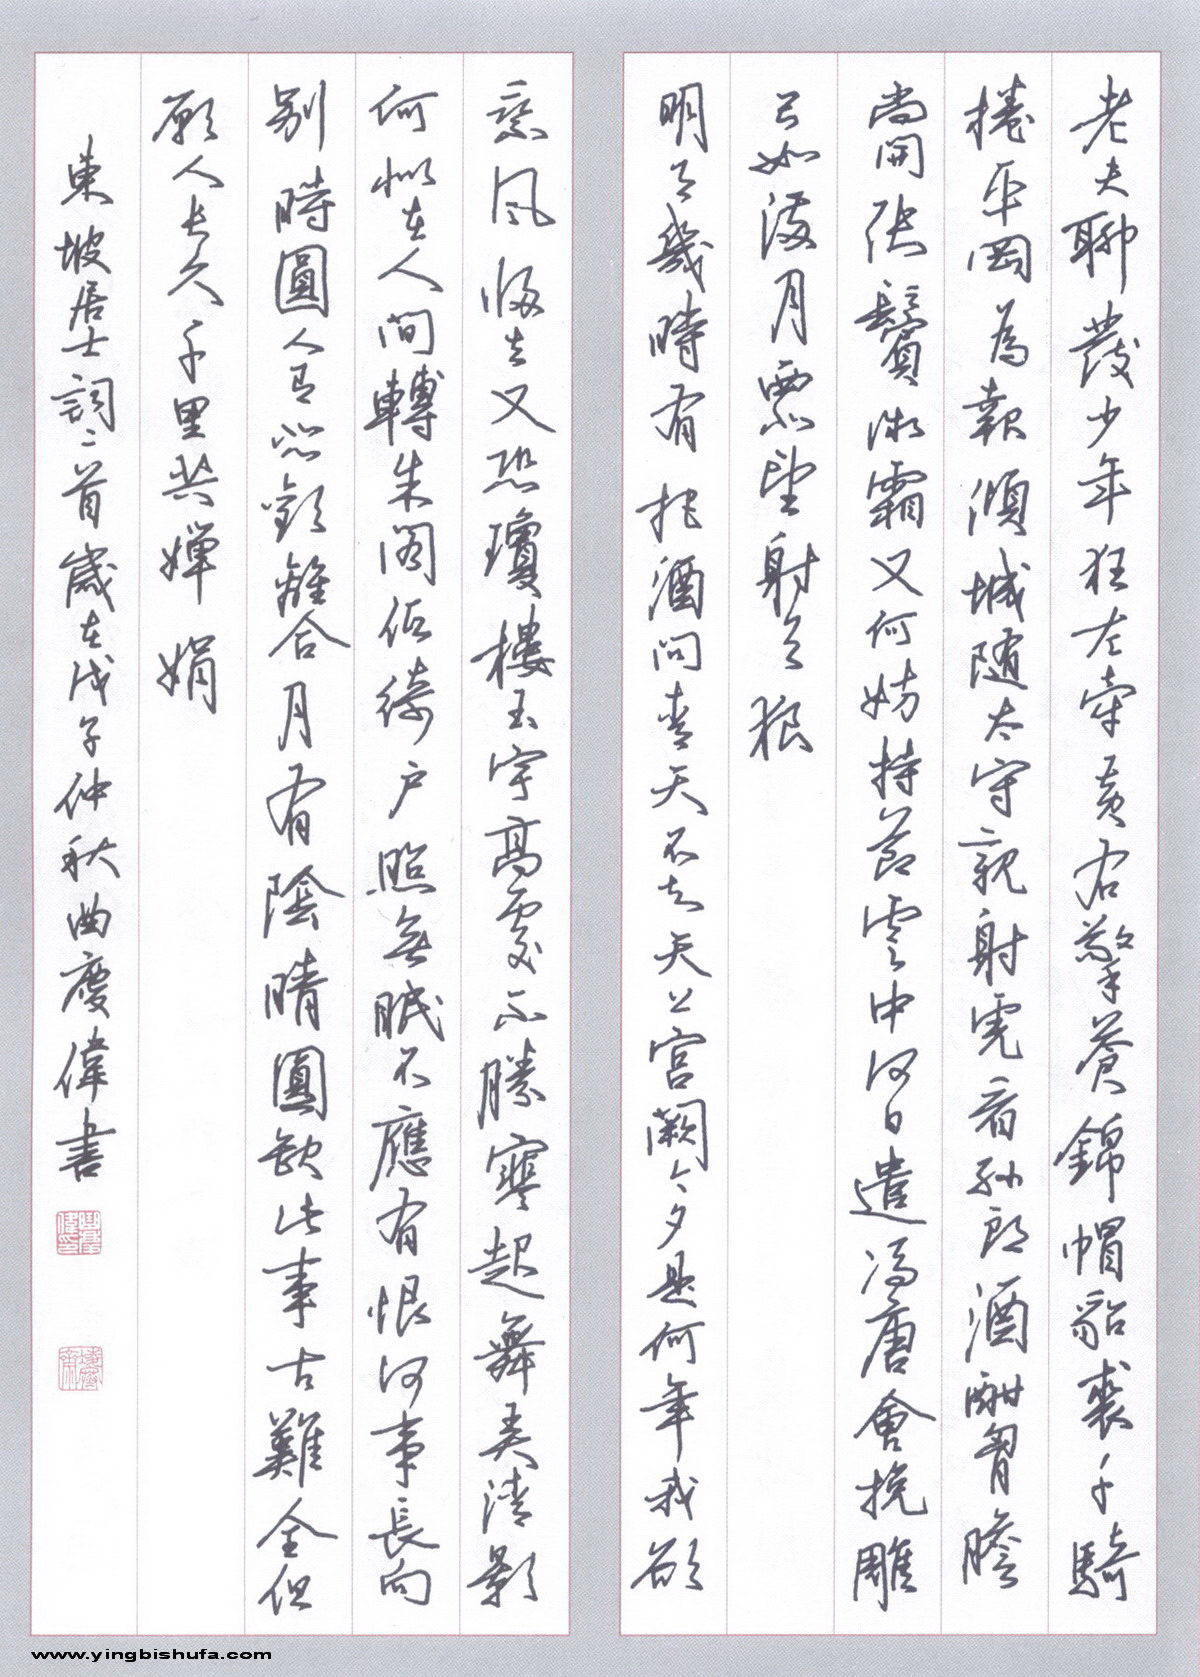 老夫聊發少年狂左牽黃右擎蒼錦帽貂裘千騎
捲平岡為報傾城随太守親射虎看孫郎酒酣胷膽
尚開張鬢微霜又何妨持節雲中何日遣馮唐會挽雕
弓如滿月西北望射天狼
明月幾時有把酒問青天不知天上宮闕今夕是何年我欲
乘風歸去又恐瓊樓玉宇高處不勝寒起舞弄清影
何似在人間轉朱閣低綺戶照無眠不應有恨何事長向
别時圓人有悲歡離合月有陰晴圓缺此事古難全但
願人長久千里共嬋娟
東坡居士詞二首歲在戊子仲秋曲慶偉書
www.yingbishufa.com